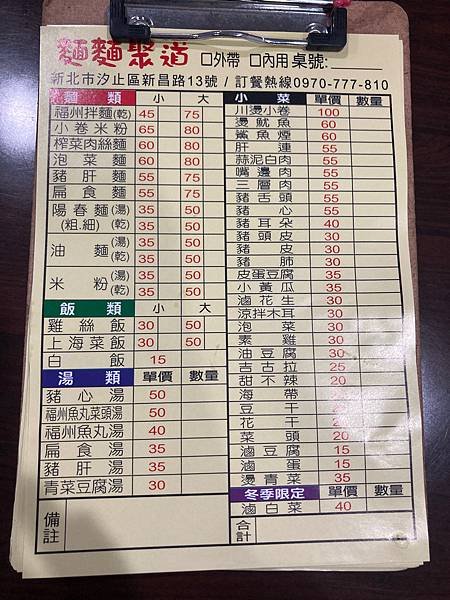 麵麵聚道 □外帶 □內用 桌號:
新北市汐止區新昌路13號 / 訂餐熱線0970-777-810
麵類 小 大
福州拌麵(乾) 45 75
小卷米粉 65 80
榨菜肉絲麵 60 80
泡菜麵 60 80
豬肝麵 55 75
扁食麵 55 75
陽春麵(湯) 35 50
(粗.細) (乾) 35 50
油麵(湯) 35 50
(乾) 35 50
米粉(湯) 35 50
(乾) 35 50
飯類 小 大
雞絲飯 30 50
上海菜飯 30 50
白飯 15
湯類 單價 數量
豬心湯 50
福州魚丸菜頭湯 50
福州魚丸湯 40
扁食湯 35
豬肝湯 35
青菜豆腐湯 30
備註
小菜 單價 數量
川燙小卷 100
燙魷魚 60
鯊魚煙 60
肝連 55
蒜泥白肉 55
嘴邊肉 55
三層肉 55
豬舌頭 55
豬心 55
豬耳朵 40
豬頭皮 30
豬皮 30
豬肺 30
皮蛋豆腐 35
小黃瓜 35
滷花生 30
涼拌木耳 30
泡菜 30
素雞 30
油豆腐 30
吉古拉 25
甜不辣 20
海帶
豆干
花干
菜頭 20
滷豆腐 15
滷蛋 15
燙青菜 35
冬季限定 單價 數量
滷白菜 40
合計